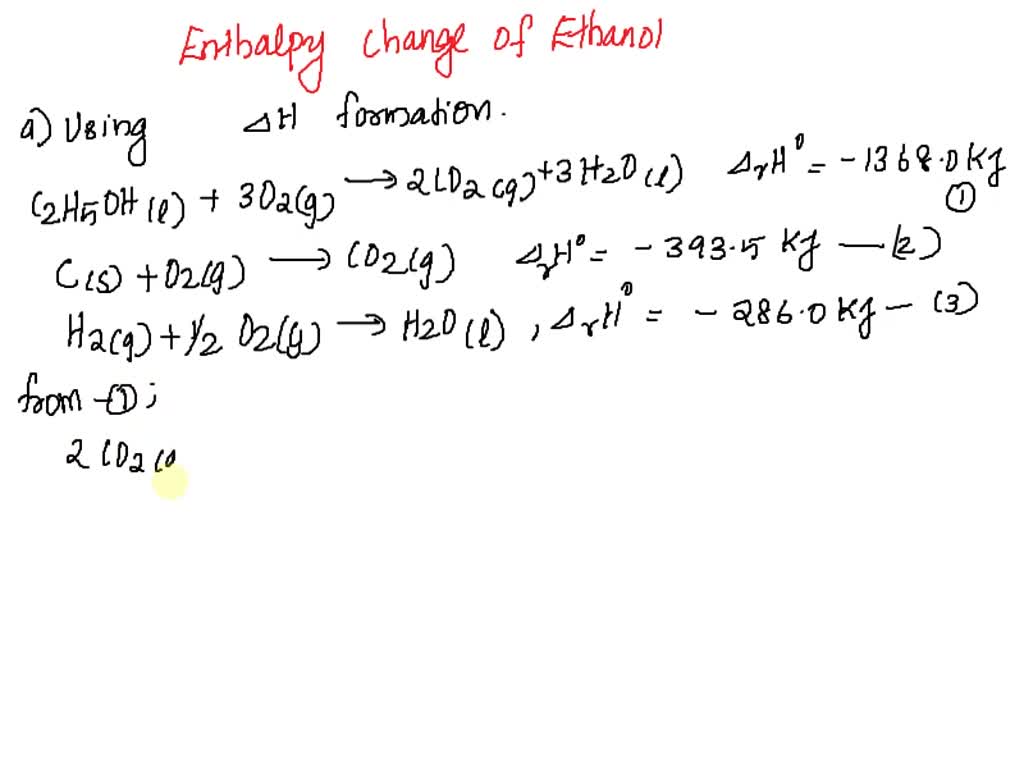 Enthalpy change of Ethanol
a) Using ΔH formation.
C2H5OH(l) + 3O2(g) → 2CO2(g) + 3H2O(l) ΔrH° = -1368.0 KJ ①
C(s) + O2(g) → CO2(g) ΔrH° = -393.5 KJ — (2)
H2(g) + 1/2 O2(g) → H2O(l), ΔrH° = -286.0 KJ — (3)
from -①;
2CO2(